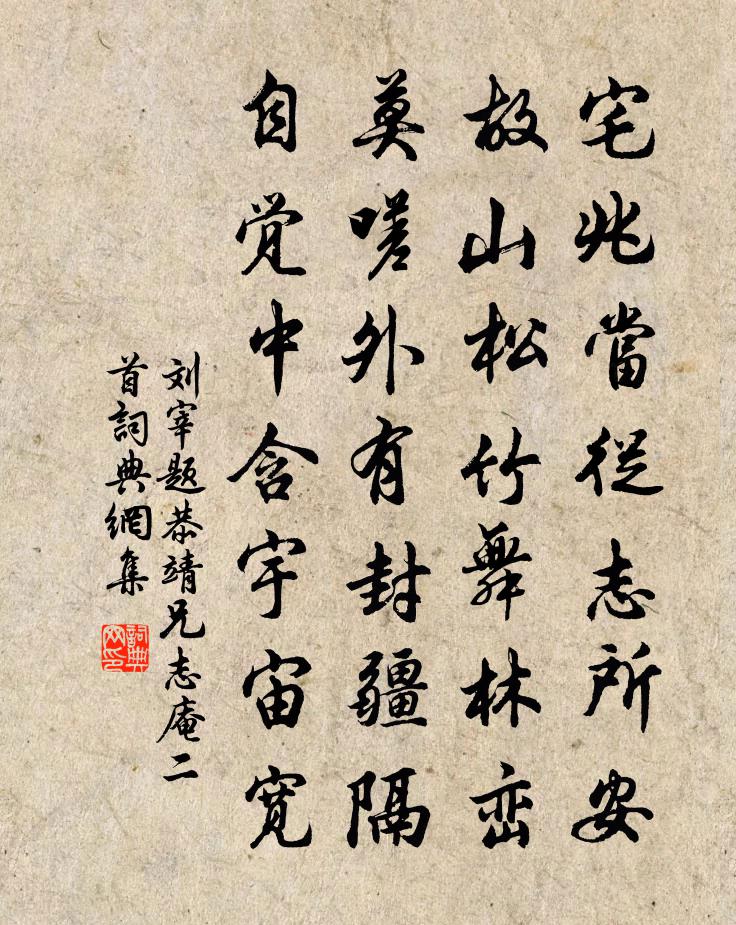 宅兆當從志所安
故山松竹舞林峦
莫嗟外有封疆隔
自觉中含宇宙寬
刘宰题恭靖兄志庵二
首詞典網集
詞典
网印